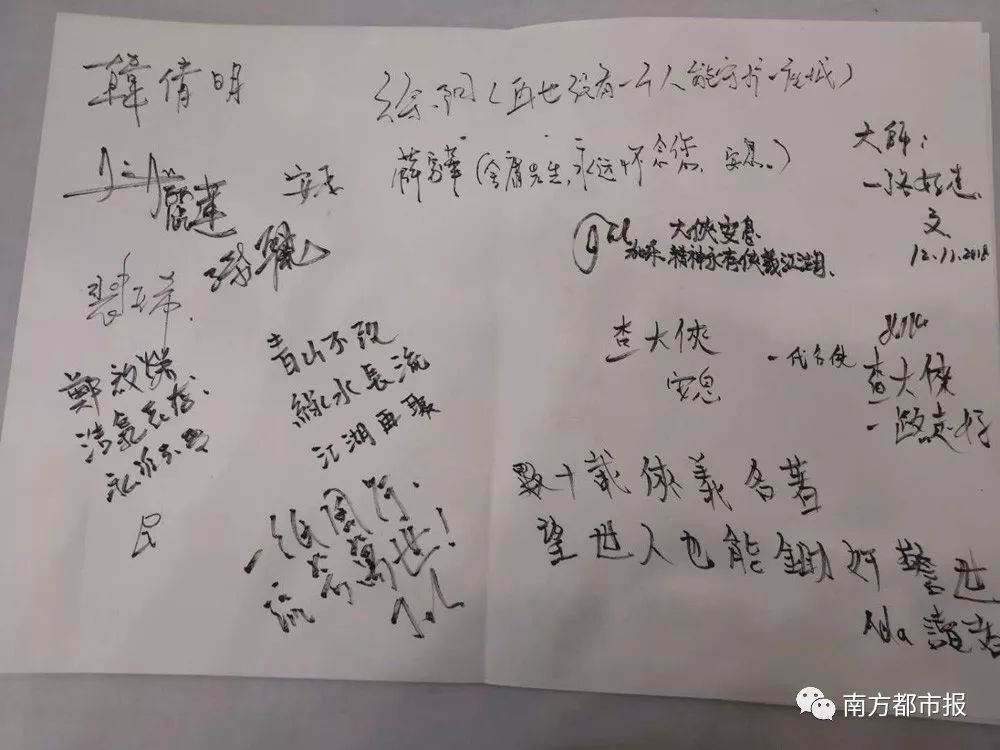 韓倩明
麗達
安息
裴玉希
鄭效榮
浩氣長存
永垂不朽
民
青山不改
綠水長流
江湖再聚
一紙風行
流芳萬世！
徐阳（再也没有一个人能守护一座城）
薛家華（金庸先生，永远怀念您，安息。）
大俠安息
精神永存俠義江湖
大師：
一路好走
文
12.11.2018
查大俠
安息
一代名侠
查大俠
一路走好
數十載俠義名著
望世人也能鋤奸警世
Ada
南方都市报